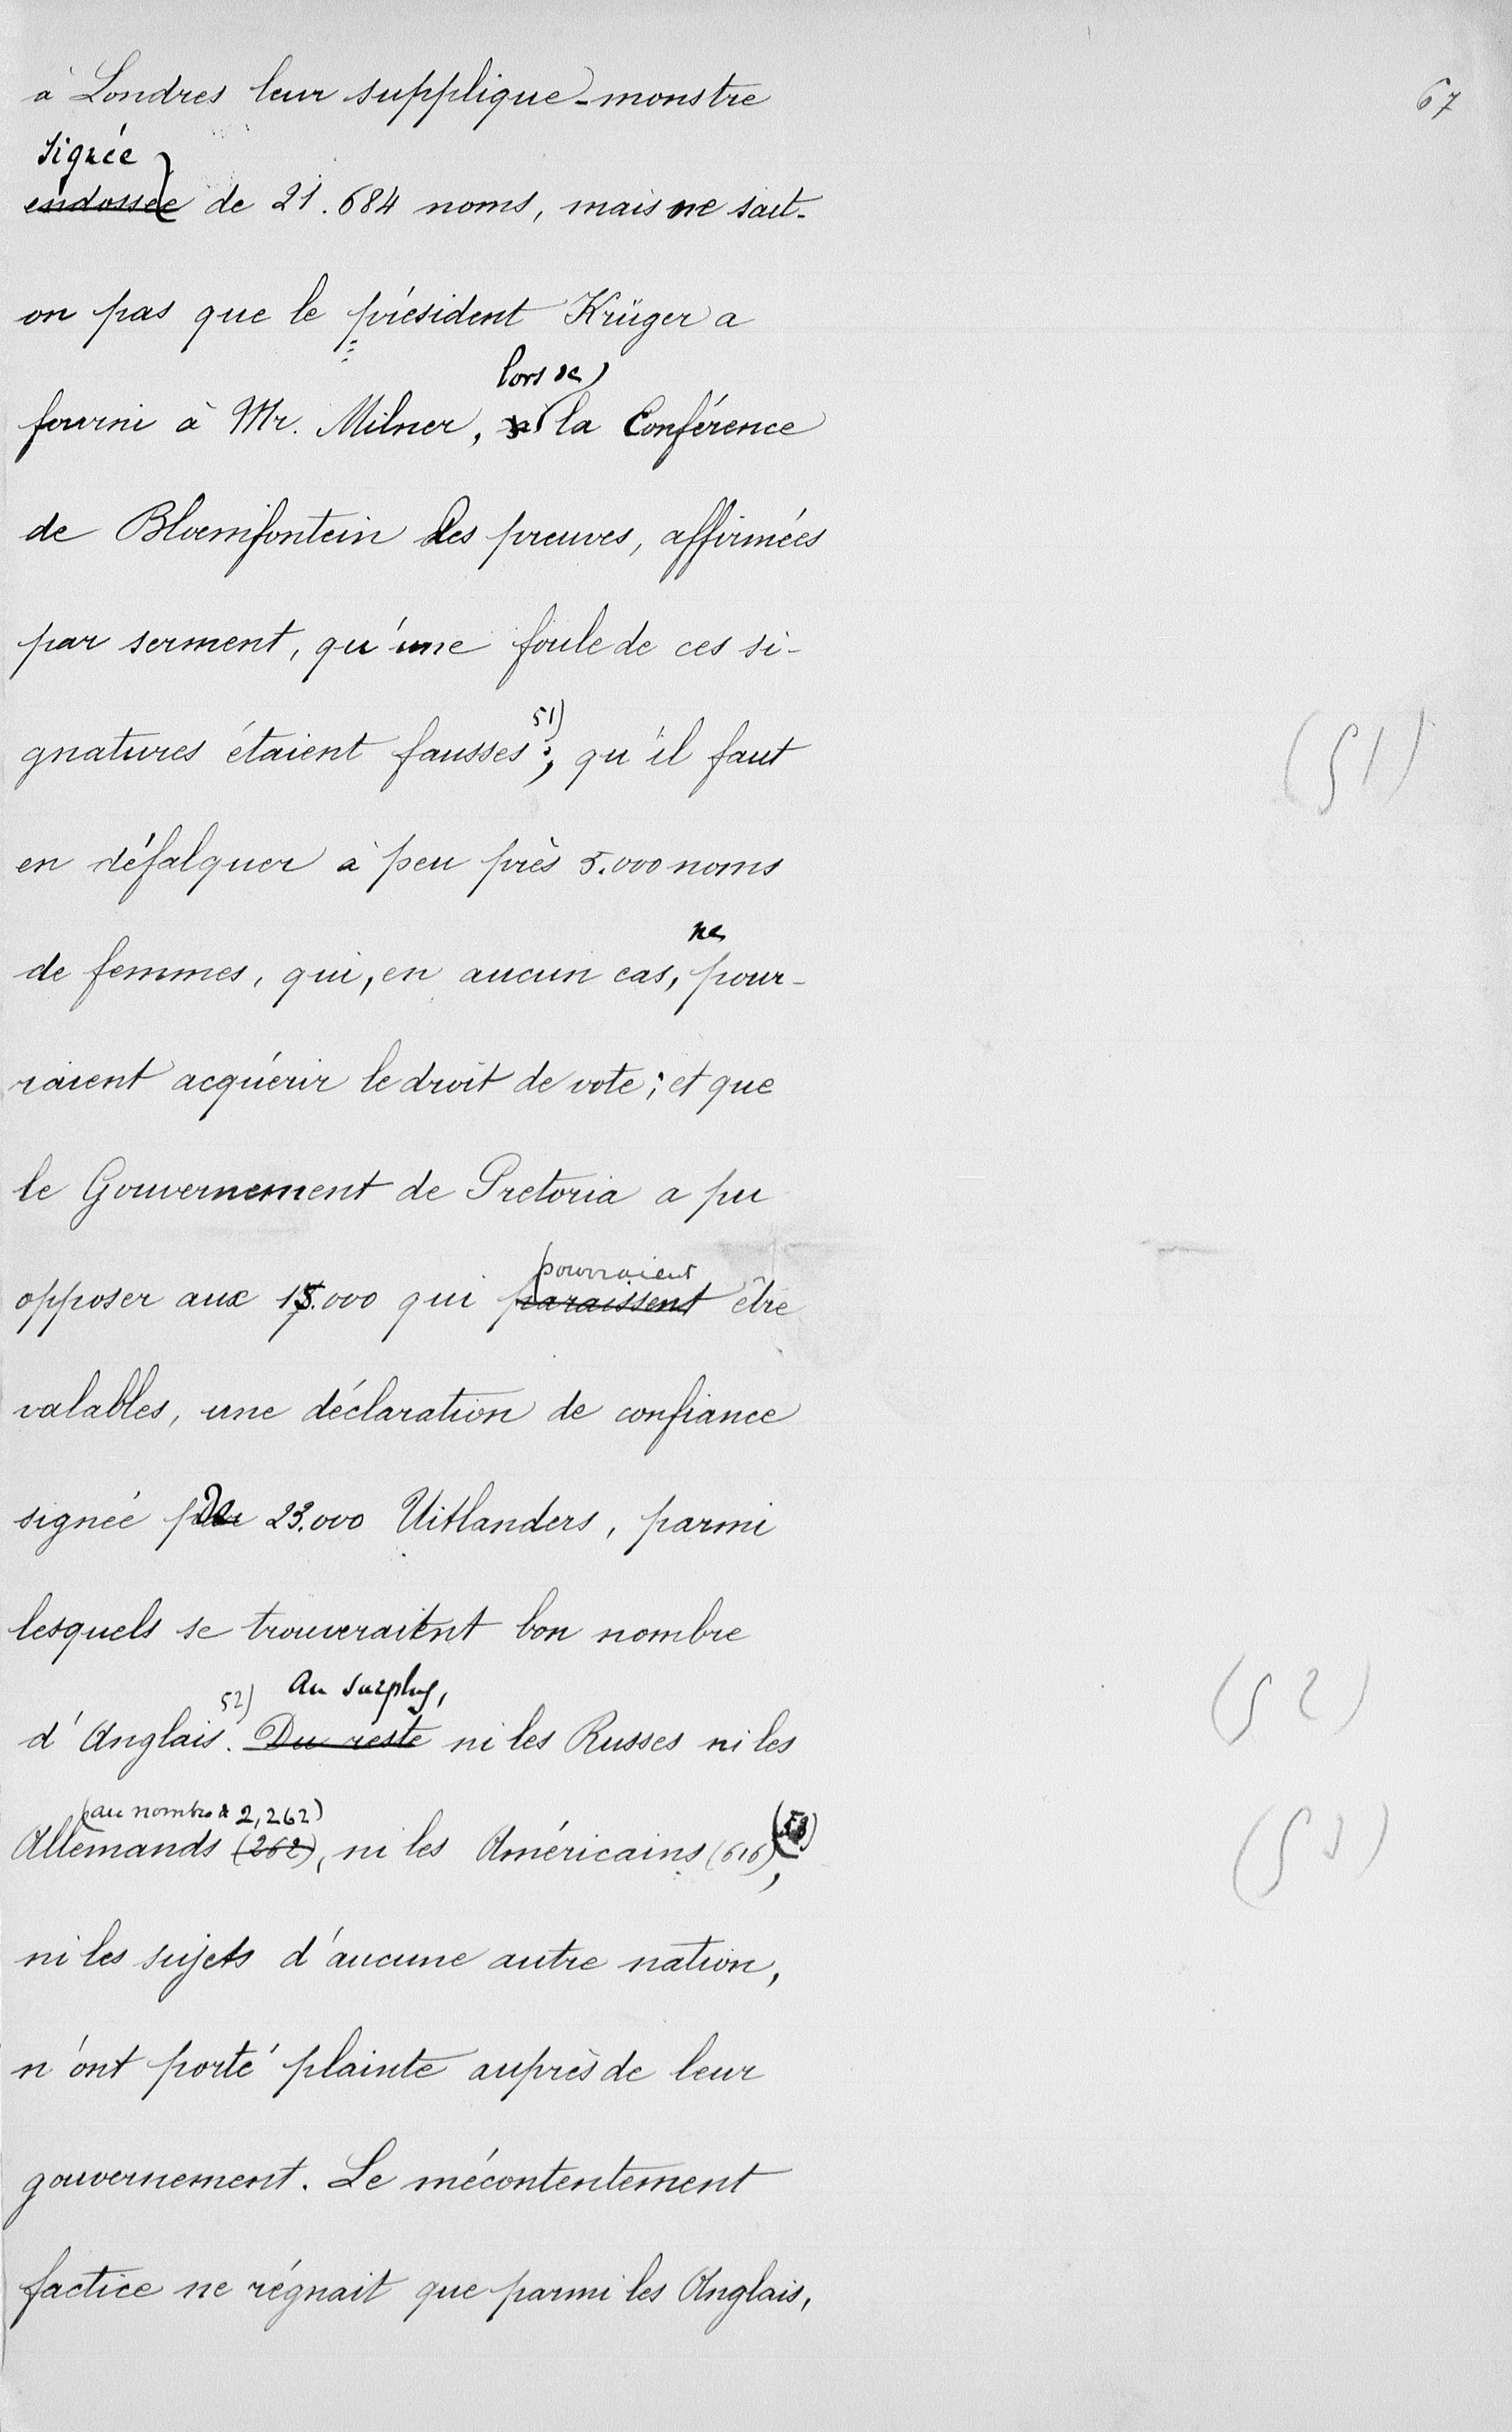 67
à Londres leur supplique-monstre
signée
endossée de 21.684 noms, mais ne sait-
on pas que le président Krüger a
lors de
fourni à Mr. Milner, la Conférence
de Bloemfontein des preuves, affirmées
par serment, qu'une foule de ces si-
gnatures étaient fausses 51); qu'il faut
(51)
en défalquer à peu près 5.000 noms
ne
de femmes, qui, en aucun cas, pour-
raient acquérir le droit de vote; et que
le Gouvernement de Pretoria a pu
pourraient
opposer aux 15.000 qui paraissent être
valables, une déclaration de confiance
signée de 23.000 Uitlanders, parmi
lesquels se trouveraient bon nombre
au surplus,
d'Anglais 52). Du reste ni les Russes ni les
(52)
(au nombre de 2,262)
Allemands (262), ni les Américains (616) (53),
(53)
ni les sujets d'aucune autre nation,
n'ont porté plainte auprès de leur
gouvernement. Le mécontentement
factice ne régnait que parmi les Anglais,